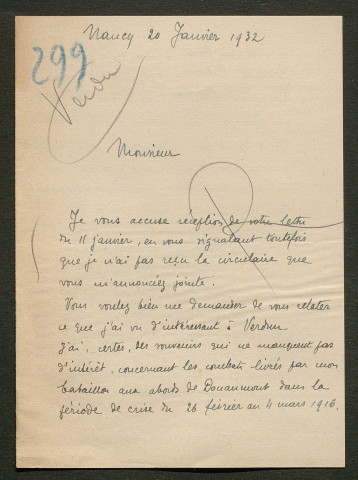 Nancy 20 Janvier 1932
299
Verdun
Monsieur
Je vous accuse réception de votre lettre
du 11 janvier, en vous signalant toutefois
que je n'ai pas reçu la circulaire que
vous m'annonciez jointe.
Vous voulez bien me demander de vous relater
ce que j'ai vu d'intéressant à Verdun
J'ai, certes, des souvenirs qui ne manquent pas
d'intérêt, concernant les combats livrés par mon
bataillon aux abords de Douaumont dans la
période de crise du 26 février au 4 mars 1916.